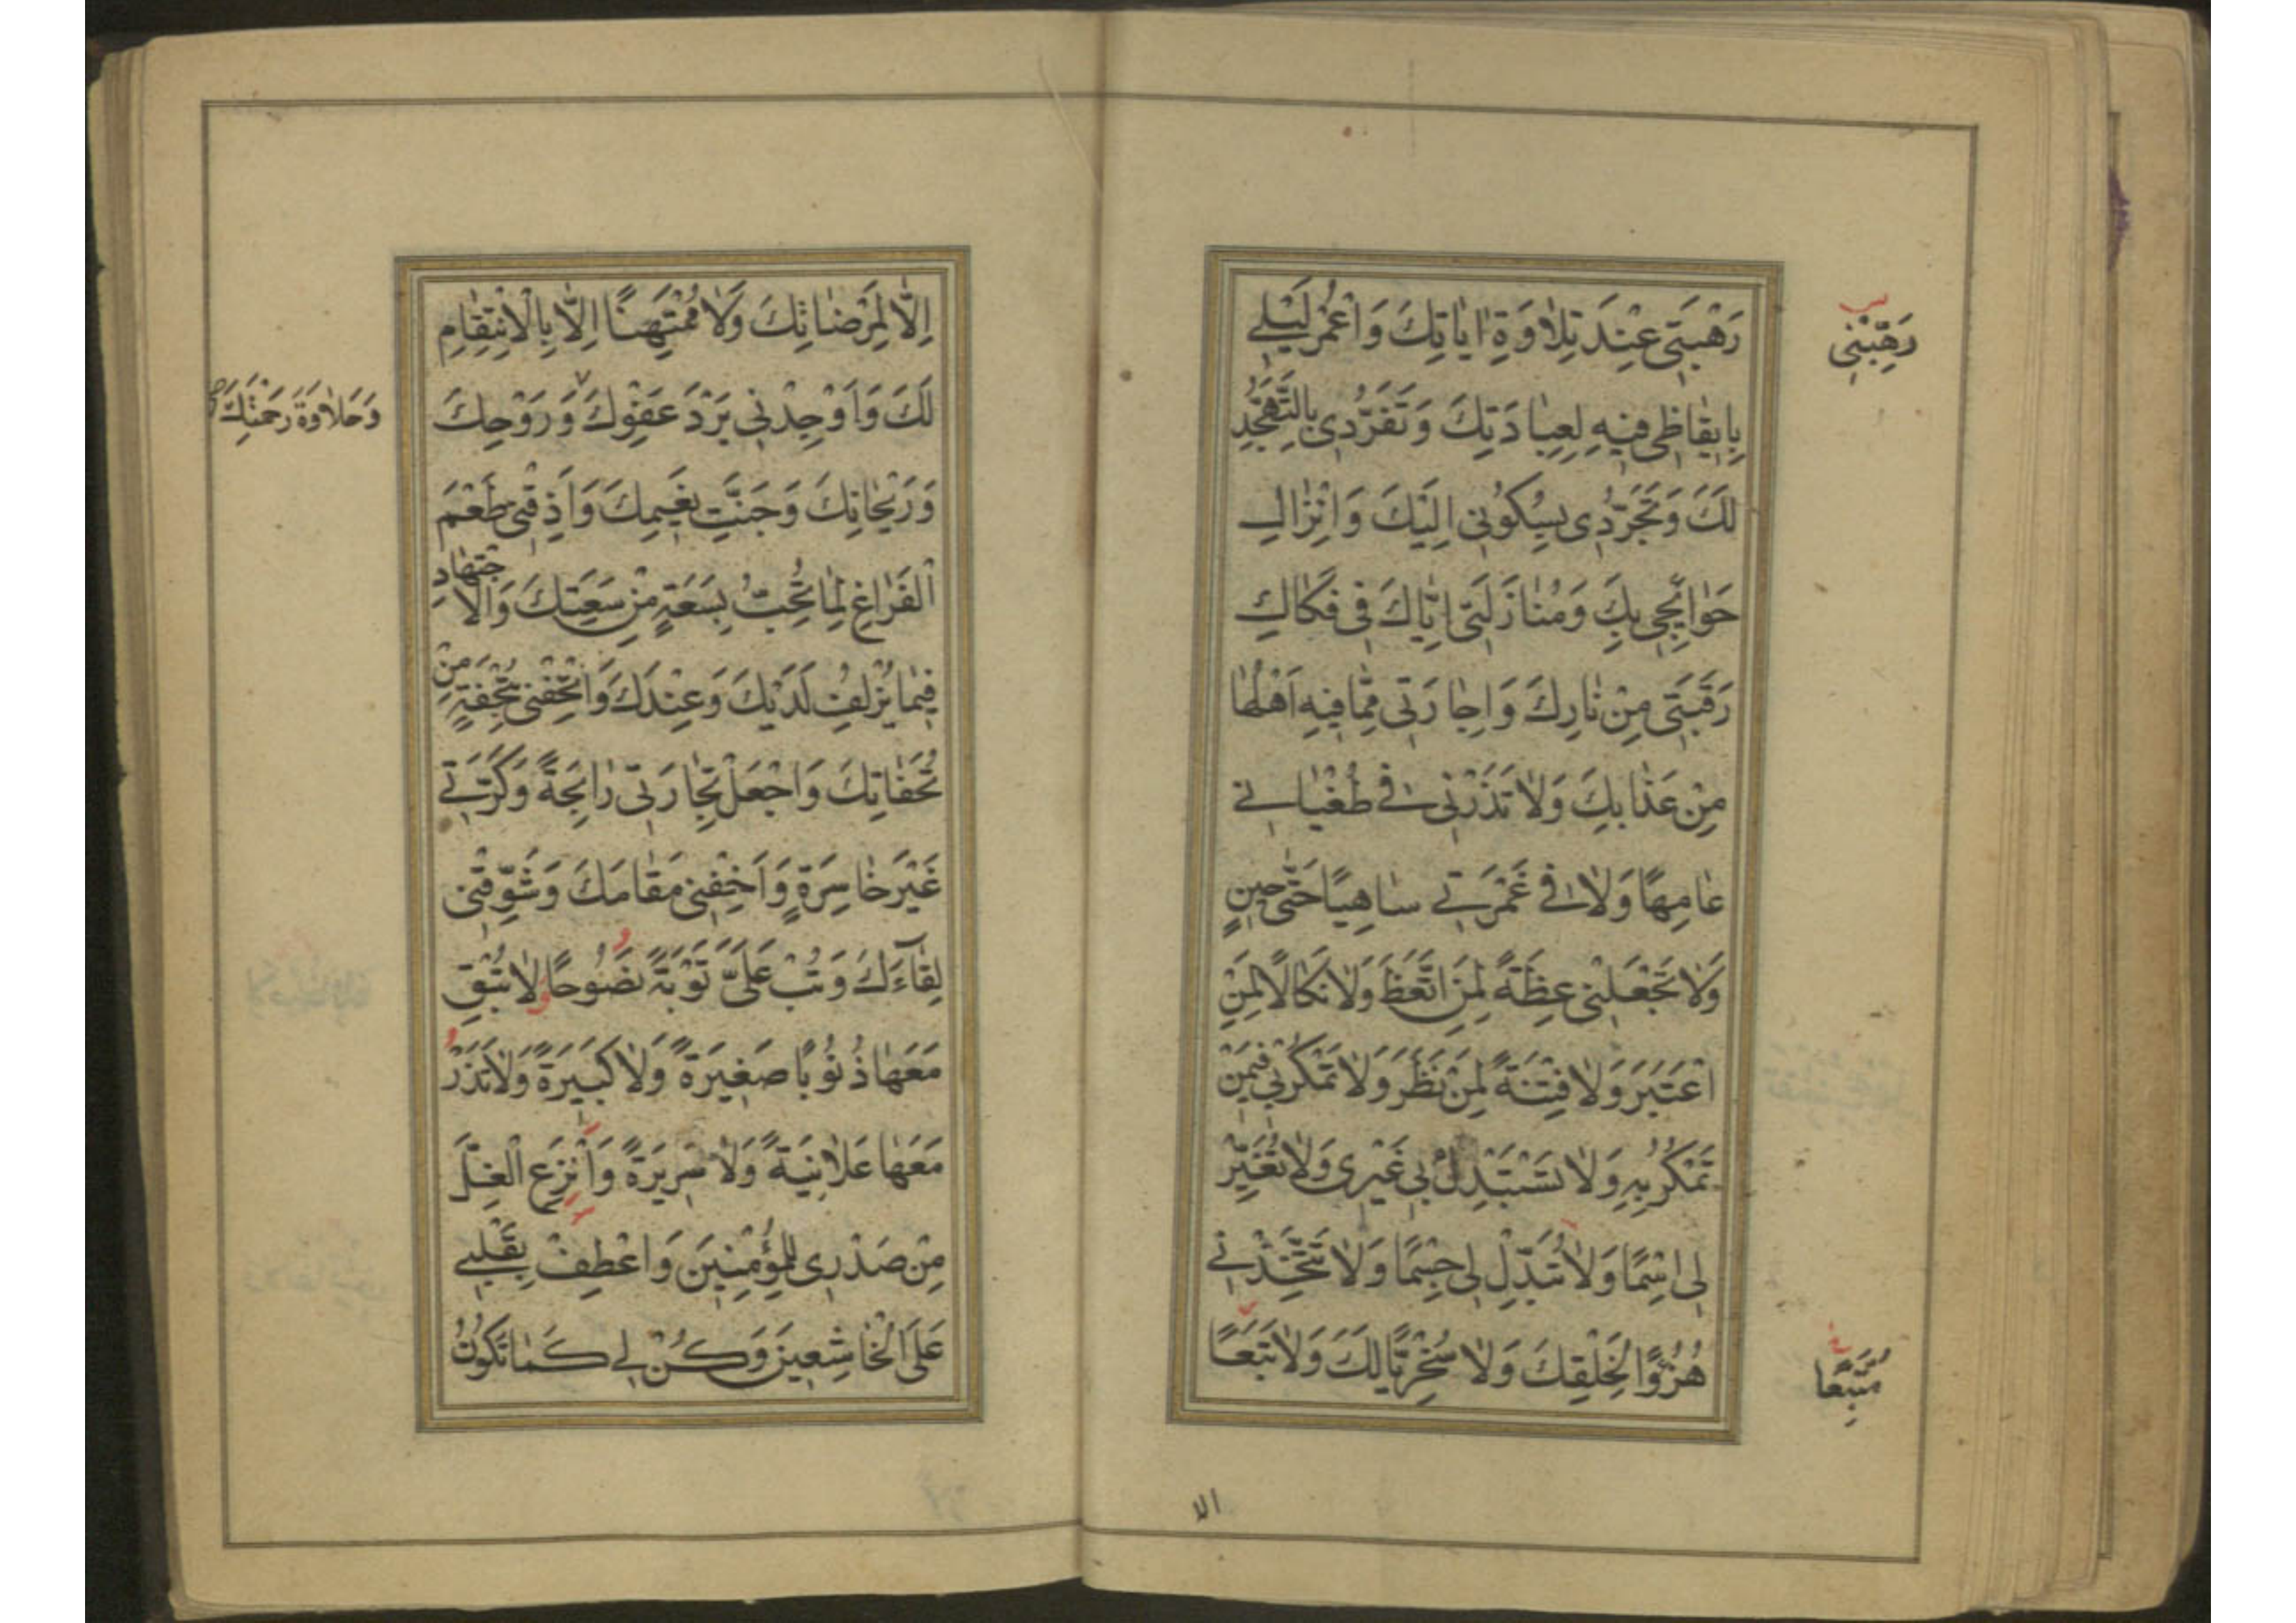 رَهْبَتِي عِنْدَ تِلاٰوَةِ اٰيٰاتِكَ وَاعْمُرْ لَيْلِي
رَهِّبْنِي
بِايقٰاظِي فيهِ لِعِبٰادَتِكَ وَتَفَرُّدي بِالتَّهَجُّدِ
لَكَ وَتَجَرُّدي بِسُكُوني اِلَيْكَ وَاِنْزٰالِ
حَوٰائِجي بِكَ وَمُنٰازَلَتي اِيّٰاكَ في فَكٰاكِ
رَقَبَتي مِنْ نٰارِكَ وَاِجٰارَتي مِمّٰا فيهِ اَهْلُهٰا
مِنْ عَذٰابِكَ وَلاٰ تَذَرْني في طُغْيٰاني
عٰامِهًا وَلاٰ في غَمْرَتي سٰاهِيًا حَتّٰى حينٍ
وَلاٰ تَجْعَلْني عِظَةً لِمَنِ اتَّعَظَ وَلاٰ نَكٰالًا لِمَنِ
اعْتَبَرَ وَلاٰ فِتْنَةً لِمَنْ نَظَرَ وَلاٰ تَمْكُرْ بي فيمَنْ
تَمْكُرُ بِهِ وَلاٰ تَسْتَبْدِلْ بي غَيْري وَلاٰ تُغَيِّرْ
لي اسْمًا وَلاٰ تُبَدِّلْ لي جِسْمًا وَلاٰ تَتَّخِذْني
هُزُوًا لِخَلْقِكَ وَلاٰ سُخْرِيًّا لَكَ وَلاٰ تَبَعًا
مُتَّبِعًا
الا
اِلّٰا لِمَرْضٰاتِكَ وَلاٰ مُمْتَهَنًا اِلّٰا بِالْاِنْتِقٰامِ
لَكَ وَاَوْجِدْني بَرْدَ عَفْوِكَ وَرَوْحِكَ
وَحَلاٰوَةَ رَحْمَتِكَ
وَرَيْحٰانِكَ وَجَنَّتِ نَعيمِكَ وَاَذِقْني طَعْمَ
الْفَرٰاغِ لِمٰا تُحِبُّ بِسَعَةٍ مِنْ سَعَتِكَ وَالْاِجْتِهٰادِ
فيمٰا يُزْلِفُ لَدَيْكَ وَعِنْدَكَ وَاَتْحِفْني بِتُحْفَةٍ مِنْ
تُحَفٰاتِكَ وَاجْعَلْ تِجٰارَتي رٰابِحَةً وَكَرَّتي
غَيْرَ خٰاسِرَةٍ وَاَخِفْني مَقٰامَكَ وَشَوِّقْني
لِقٰاءَكَ وَتُبْ عَلَيَّ تَوْبَةً نَصُوحًا وَلاٰ تُبْقِ
مَعَهٰا ذُنُوبًا صَغيرَةً وَلاٰ كَبيرَةً وَلاٰ تَذَرْ
مَعَهٰا عَلاٰنِيَةً وَلاٰ سَريرَةً وَانْزِعِ الْغِلَّ
مِنْ صَدْري لِلْمُؤْمِنينَ وَاعْطِفْ بِقَلْبي
عَلَى الْخٰاشِعينَ وَكُنْ لي كَمٰا تَكُونُ